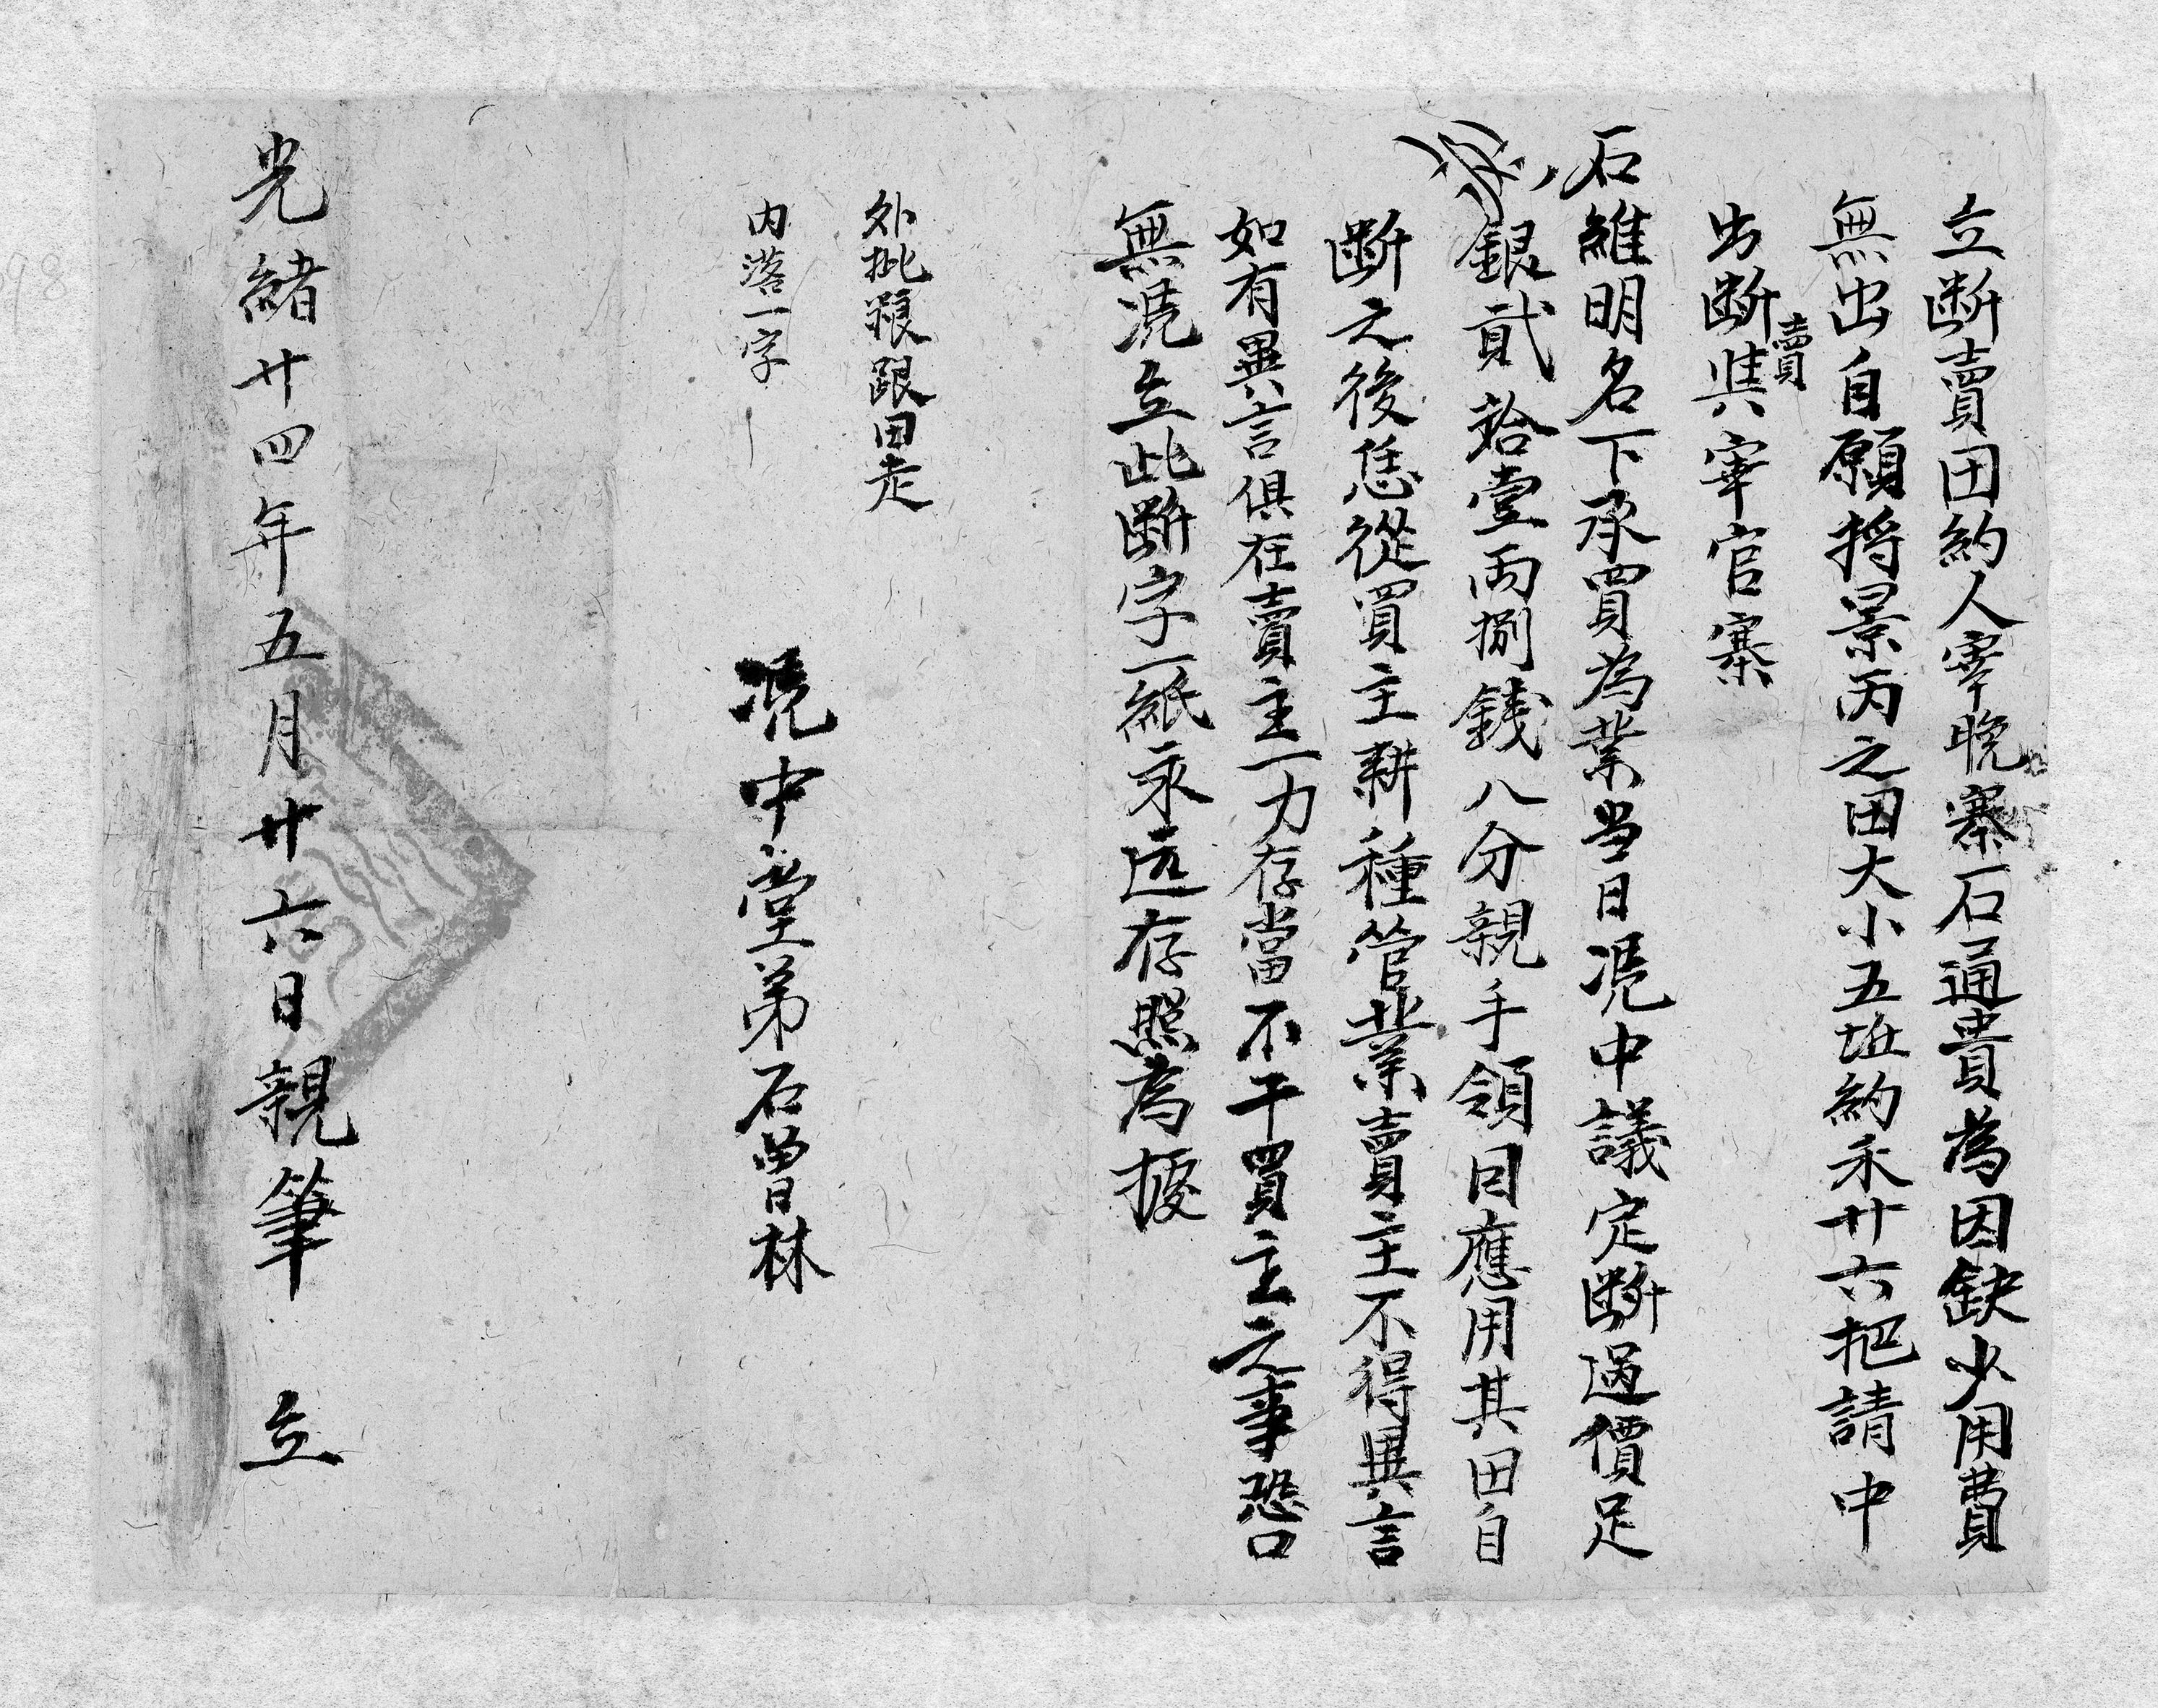 立断賣田約人宰晚寨石通貴為因缺少用費
無出自願將景丙之田大小五坵約禾廿六把請中
出断賣與宰官寨
石維明名下承買為業当日凴中議定断過價足
銀貳拾壹両捌錢八分親手領回應用其田自
断之後恁從買主耕種管業賣主不得異言
如有異言俱在賣主一力存當不干買主之事恐口
無凴立此断字一紙永远存照為據
外批粮跟田走
内落一字
凴中堂弟石曽林
光緒廿四年五月廿六日親筆 立